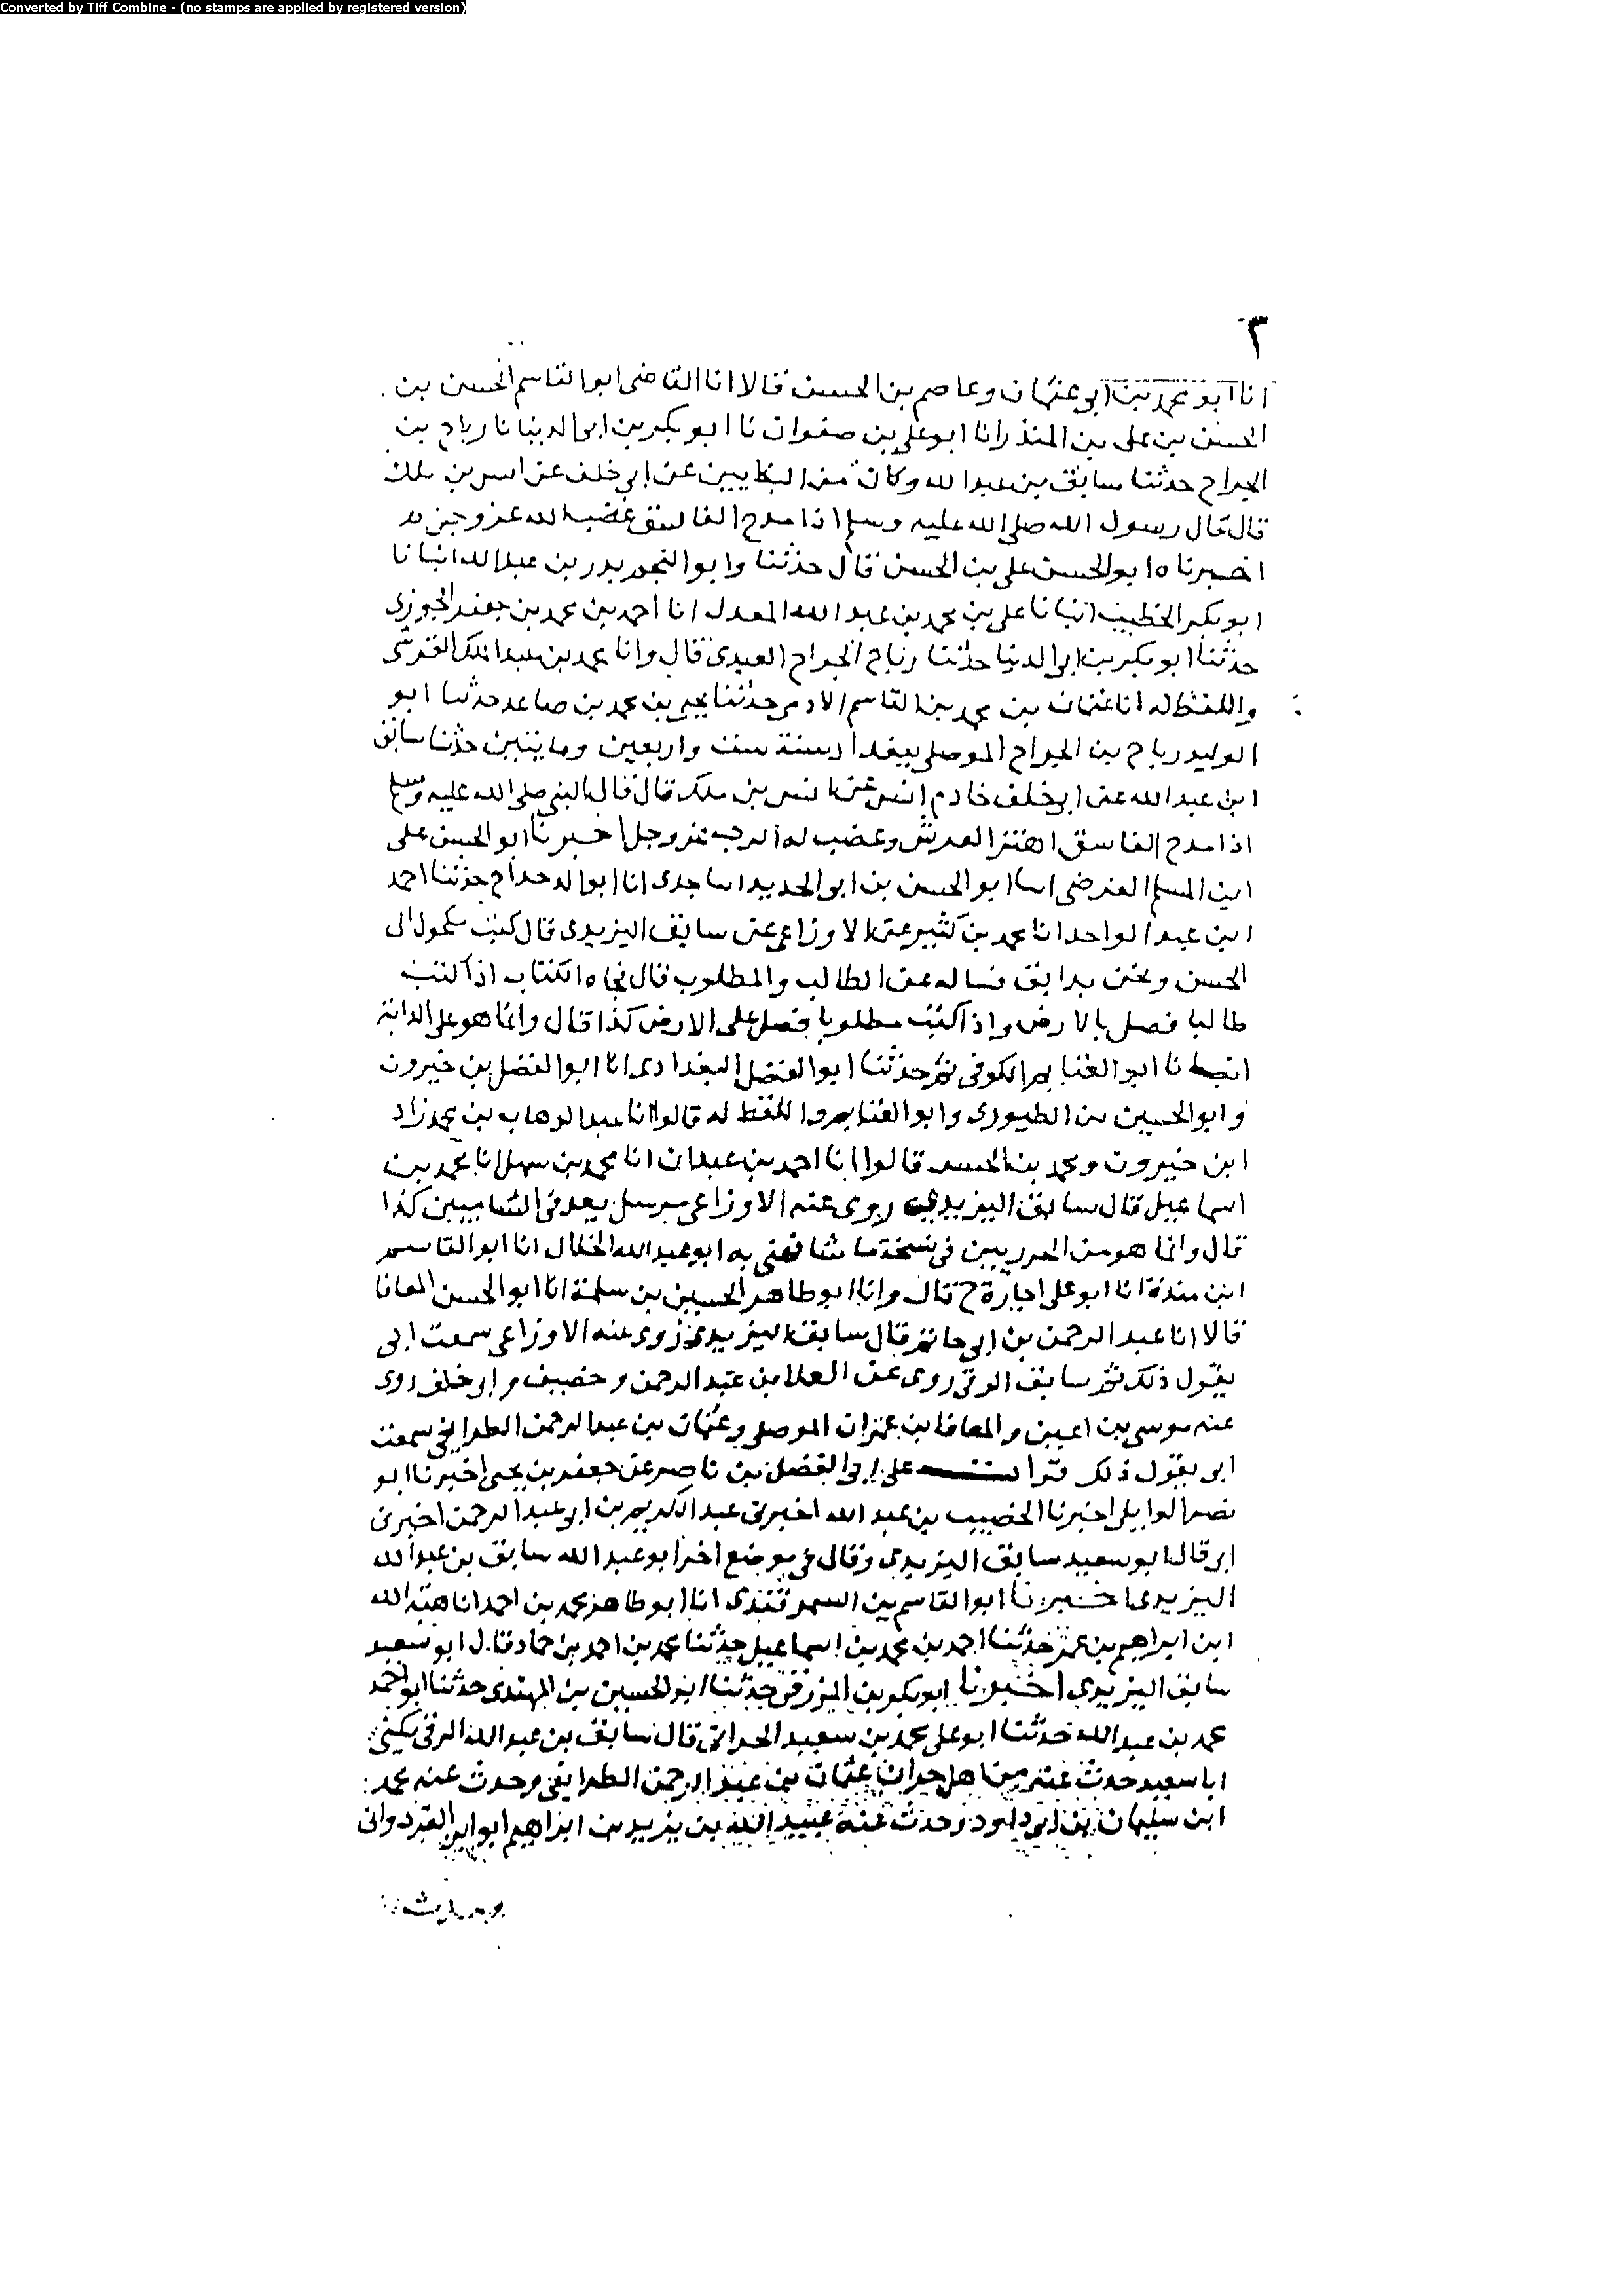 Converted by Tiff Combine - (no stamps are applied by registered version)
٣
انا ابو محمد بن ابي عثمان وعاصم بن الحسن قالا انا القاضي ابو القاسم الحسن بن
الحسن بن علي بن المنذر انا ابو علي بن صفوان نا ابو بكر بن ابي الدنيا نا رباح بن
الجراح حدثنا سابق بن عبد الله وكان من البكايين عن ابي خلف عن انس بن ملك
قال قال رسول الله صلي الله عليه وسلم اذا مدح الفاسق غضب الله عز وجل
اخبرناه ابو الحسن علي بن الحسن قال حدثنا وابو النجم بدر بن عبد الله انبانا
ابو بكر الخطيب انبانا علي بن محمد بن عبد الله المعدل انا احمد بن محمد بن جعفر الجوزي
حدثنا ابو بكر بن ابي الدنيا حدثنا رباح الجراح العبدي قال وانا محمد بن عبد الملك القرشي
واللفظ له انا عثمان بن محمد بن القاسم الادمي حدثنا يحيى بن محمد بن صاعد حدثنا ابو
الوليد رباح بن الجراح الموصلي ببغداد سنة ست واربعين ومايتين حدثنا سابق
ابن عبد الله عن ابي خلف خادم انس عن انس بن ملك قال قال النبي صلي الله عليه وسلم
اذا مدح الفاسق اهتز العرش وغضب له الرب عز وجل اخبرنا ابو الحسن علي
ابن المسلم الفرضي انبا ابو الحسن بن ابي الحديد انبا جدي انا ابو الدحداح حدثنا احمد
ابن عبد الواحد انا محمد بن كثير عن الاوزاعي عن سابق اليزيدي قال كتب مكحول الي
الحسن ونحن بدابق فساله عن الطالب والمطلوب قال فجاه الكتاب اذا كنت
طالبا فصل بالارض واذا كنت مطلوبا فصل علي الارض كذا قال وانما هو علي الدابة
انبانا ابو الغنايم الكوفي ثم حدثنا ابو الفضل البغدادي انا ابو الفضل بن خيرون
وابو الحسين بن الطيوري وابو الغنايم واللفظ له قالوا انا عبد الوهاب بن محمد زاد
ابن خيرون ومحمد بن الحسن قالوا انا احمد بن عبدان انا محمد بن سهل انا محمد بن
اسماعيل قال سابق اليزيدي روي عنه الاوزاعي مرسل يعد في الشاميين كذا
قال وانما هو من الحرريين في نسخة ما شافهني به ابو عبد الله الخلال انا ابو القاسم
ابن مندة انا ابو علي اجازة ح قال وانا ابو طاهر الحسين بن سلمة انا ابو الحسن المعافا
قالا انا عبد الرحمن بن ابي حاتم قال سابق اليزيدي روي عنه الاوزاعي سمعت ابي
يقول ذلك ثم سابق الرقي روي عن العلا بن عبد الرحمن وخصيف وابو خلف روي
عنه موسي بن اعين والمعافا بن عمران الموصلي وعثمان بن عبد الرحمن الطرايفي سمعت
ابي يقول ذلك قرات علي ابي الفضل بن ناصر عن جعفر بن يحيى اخبرنا ابو
نصر الوايلي اخبرنا الخصيب بن عبد الله اخبرني عبد الكريم بن ابي عبد الرحمن اخبرني
ابي قال ابو سعيد سابق اليزيدي وقال في موضع اخر ابو عبد الله سابق بن عبد الله
اليزيدي اخبرنا ابو القاسم بن السمرقندي انا ابو طاهر محمد بن احمد انا هبة الله
ابن ابراهيم بن عمر حدثنا احمد بن محمد بن اسماعيل حدثنا محمد بن احمد بن حماد قال ابو سعيد
سابق اليزيدي اخبرنا ابو بكر بن المزرفي حدثنا ابو الحسين بن المهتدي حدثنا ابو احمد
محمد بن عبد الله حدثنا ابو علي محمد بن سعيد الحراني قال سابق بن عبد الله الرقي يكنى
ابا سعيد حدث عنه من اهل حران عثمان بن عبد الرحمن الطرايفي وحدث عنه محمد
ابن سليمان بن ابي داود وحدث عنه عبيد الله بن يزيد بن ابراهيم ابو القردواني